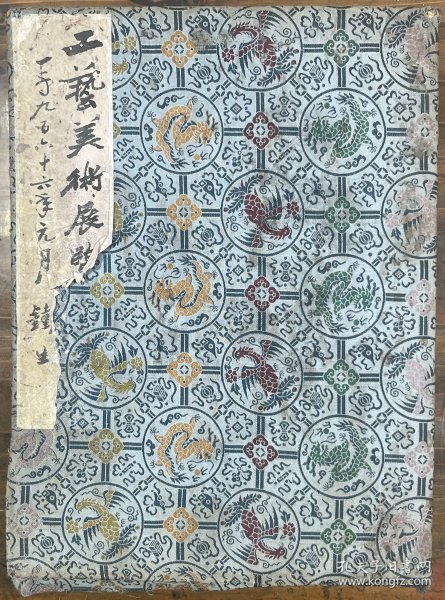 工藝美術展覽
一千九百六十六年元月
鐘生
孔夫子旧书网
www.kongfz.com